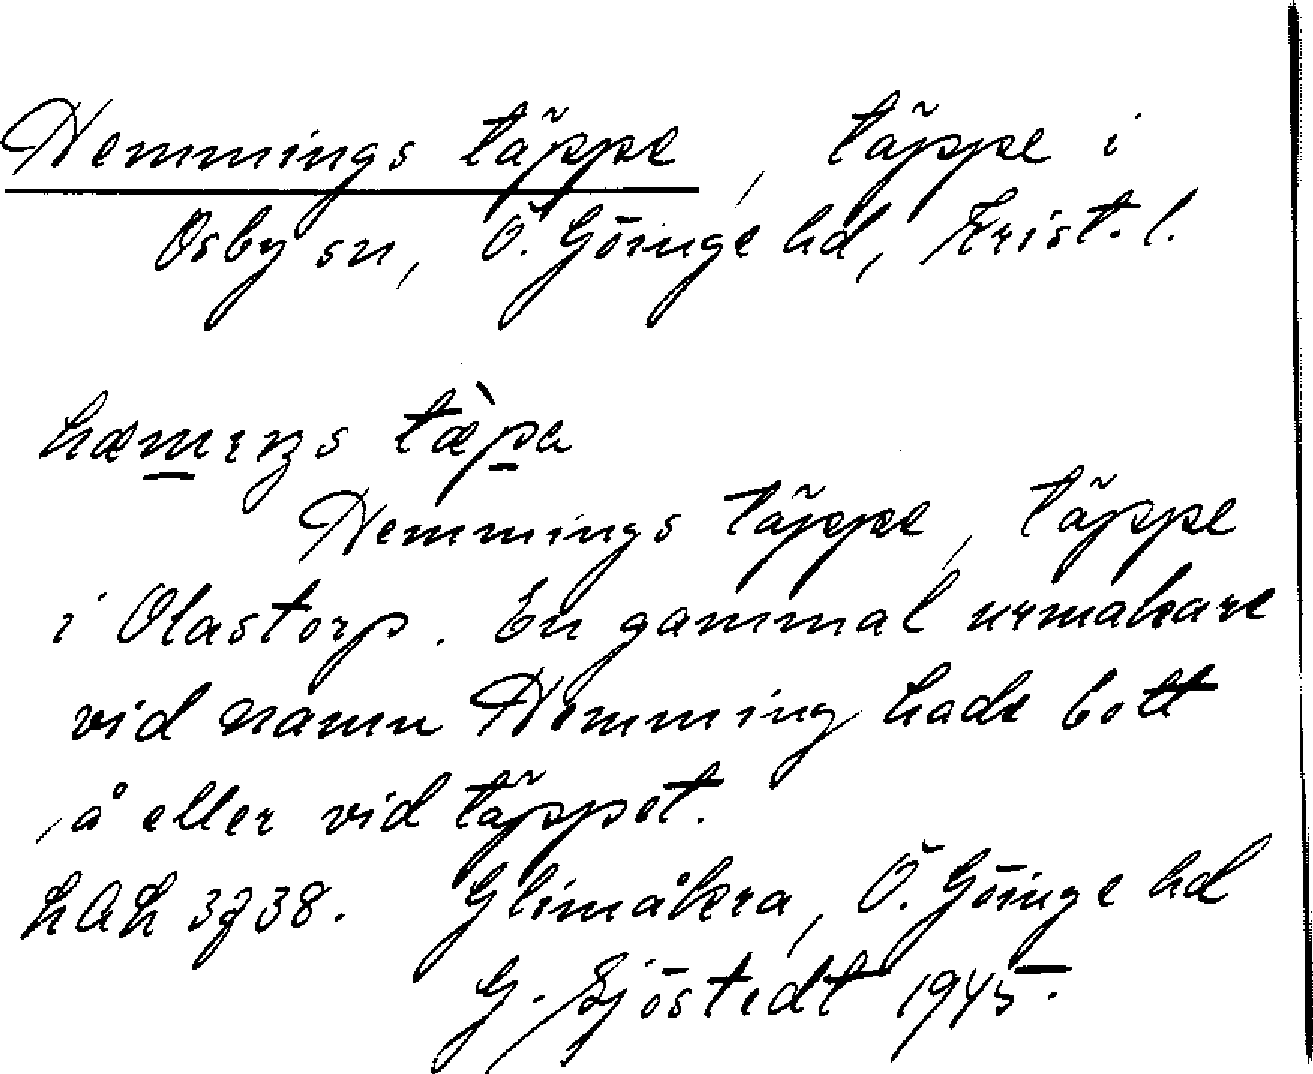 Hemmings täppe, täppe i
Osby sn, Ö. Göinge hd, Krist. l.
hæmıŋs tæ̀pa
Hemmings täppe, täppe
i Olastorp. En gammal urmakare
vid namn Hemming hade bott
å eller vid täppet.
LAL 3738. Glimåkra, Ö. Göinge hd
G. Sjöstedt 1945.